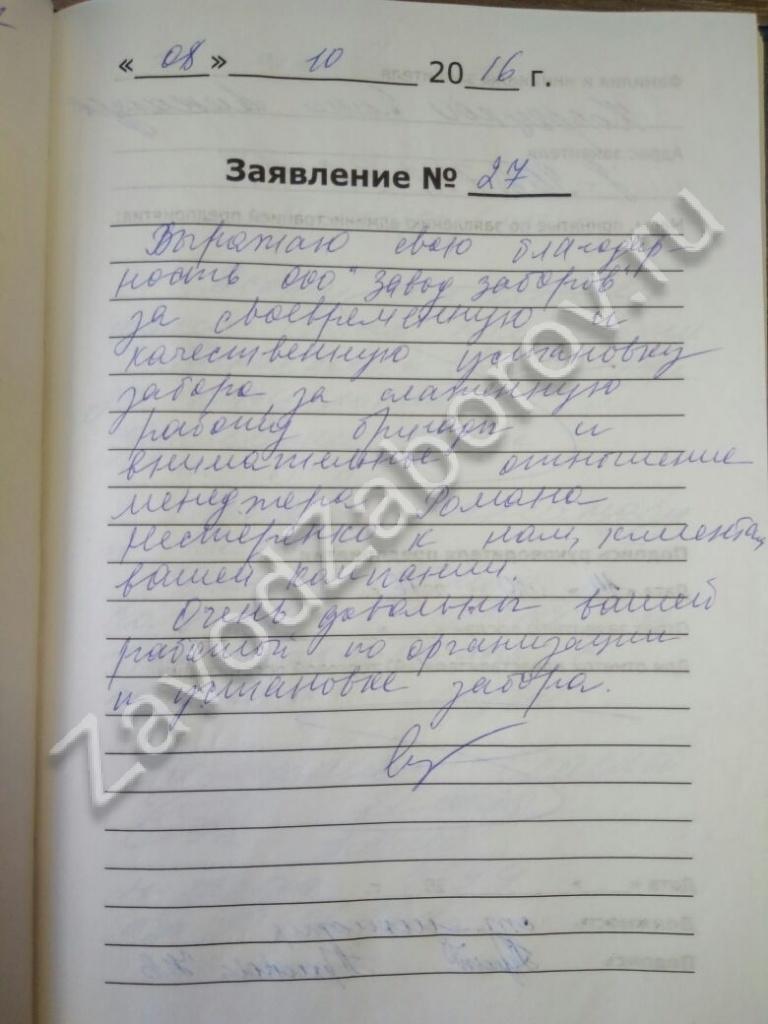 « 08 » 10 2016 г.
Заявление № 27
Выражаю свою благодар-
ность ООО "Завод заборов"
за своевременную и
качественную установку
забора, за слаженную
работу бригады и
внимательные отношение
менеджера Романа
Нестеренко к нам, клиентам
вашей компании.
Очень довольны вашей
работой по организации
и установке забора.
ZavodZaborov.ru